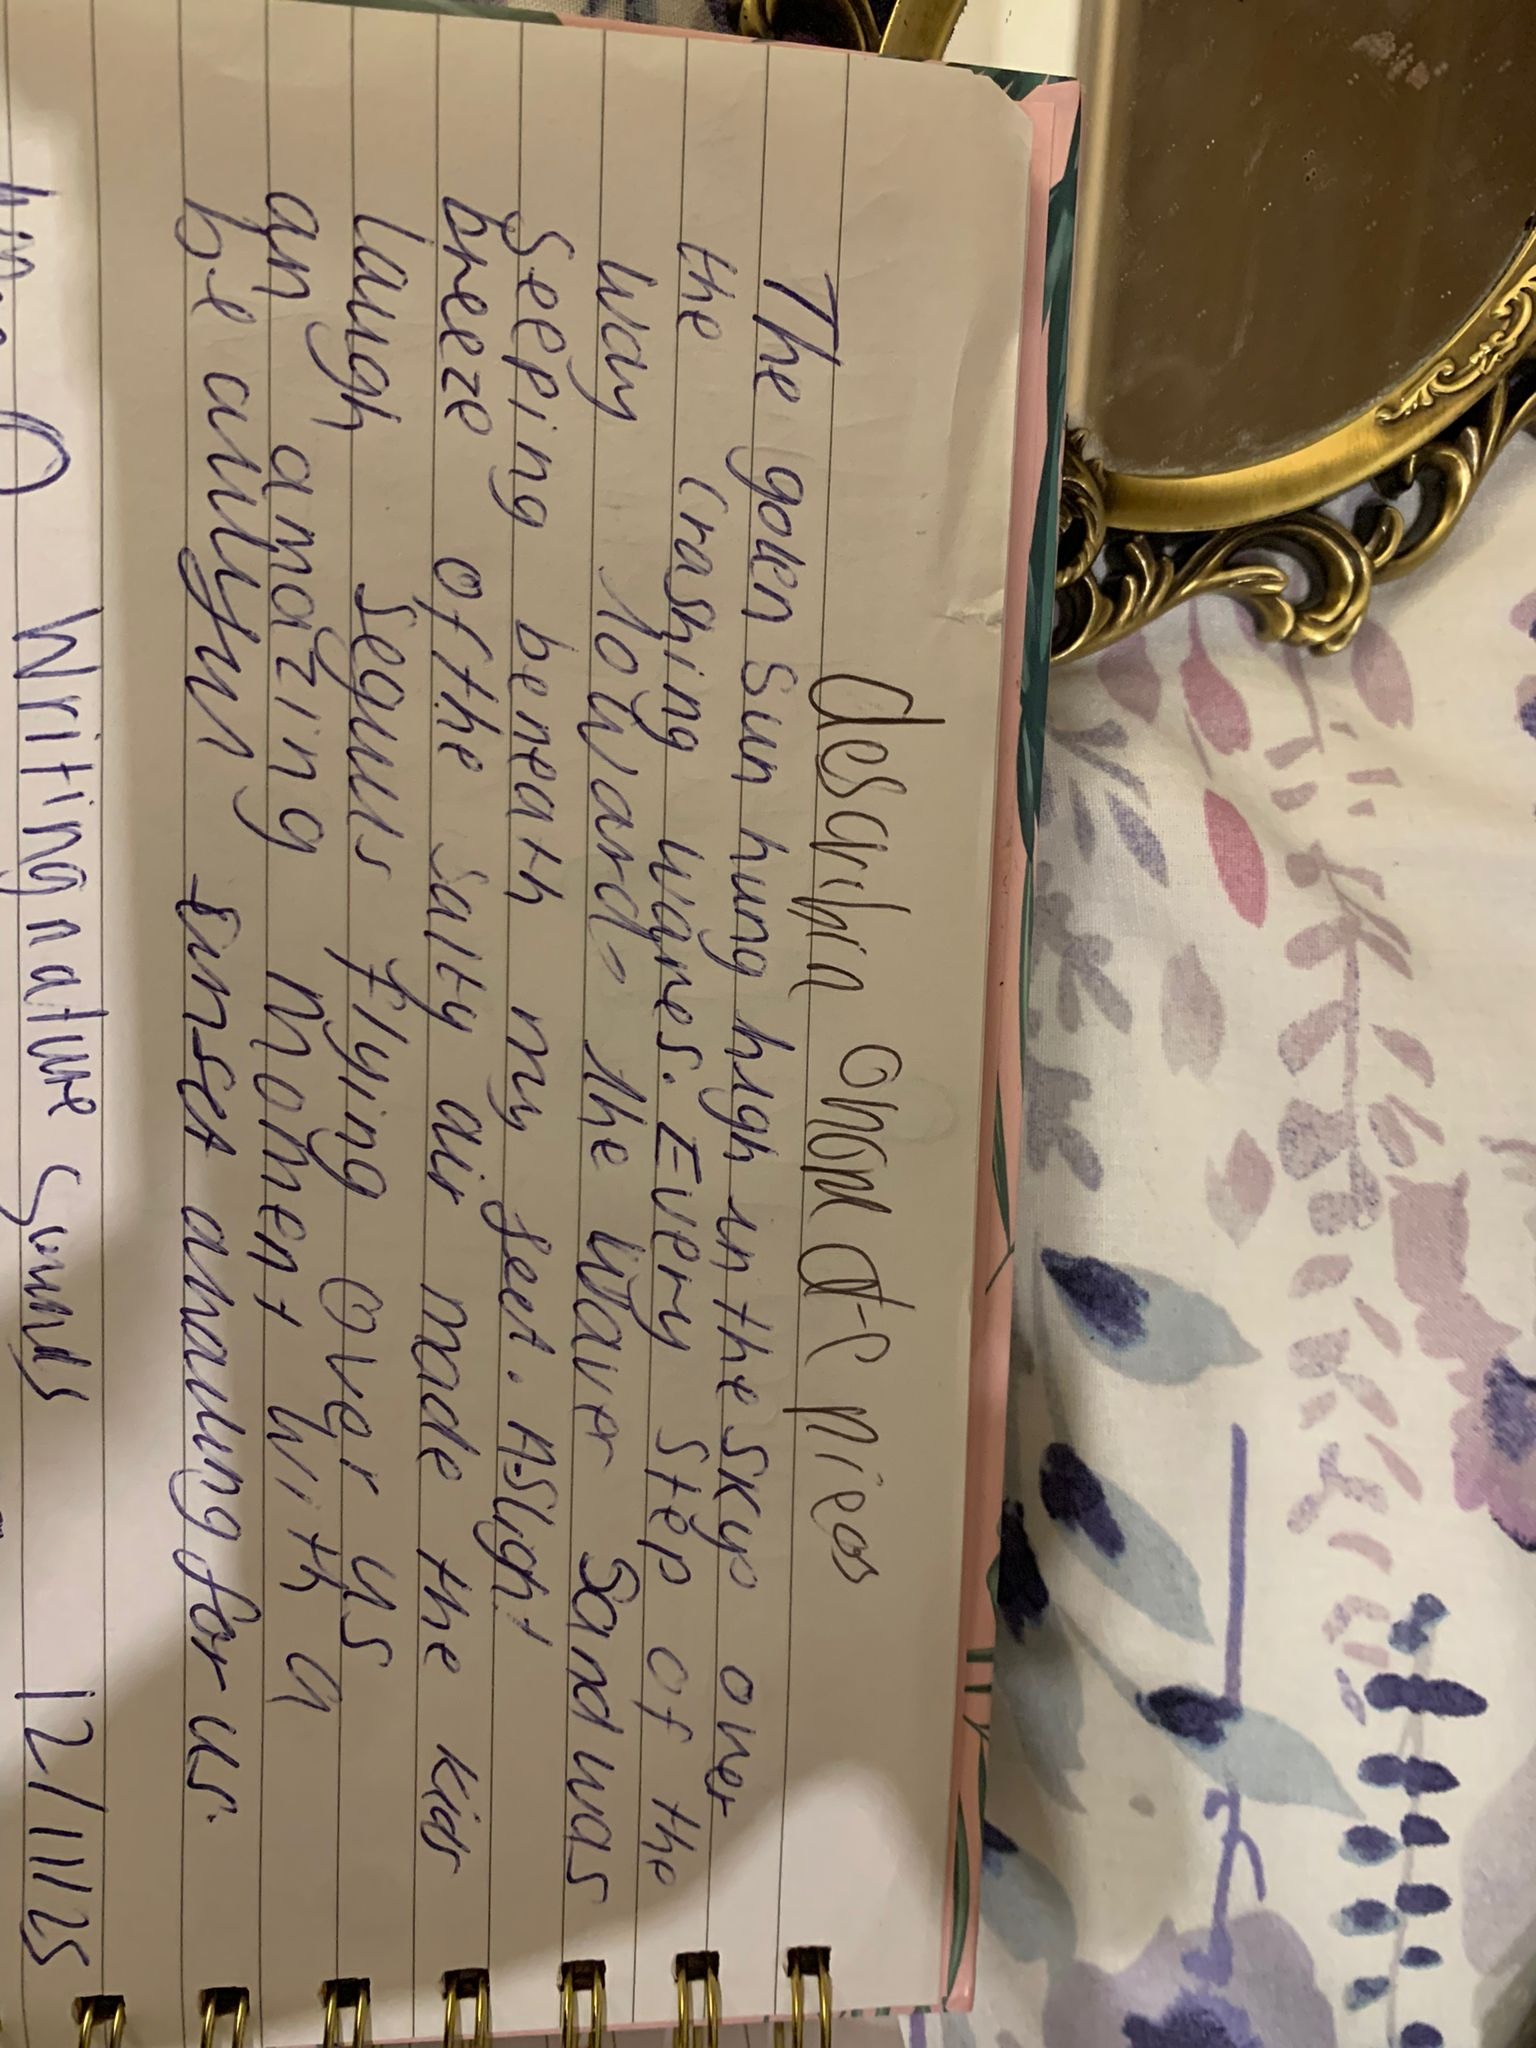 The golden sun hung high in the sky over
the crashing waves. Every step of the
way towards the water Sand was
Seeping beneath my feet. A slight
breeze of the salty air made the kids
laugh seguls flying over us
an amazing moment with a
be autyfun sunset
for us.
Writing nature Sounds 12/11/25